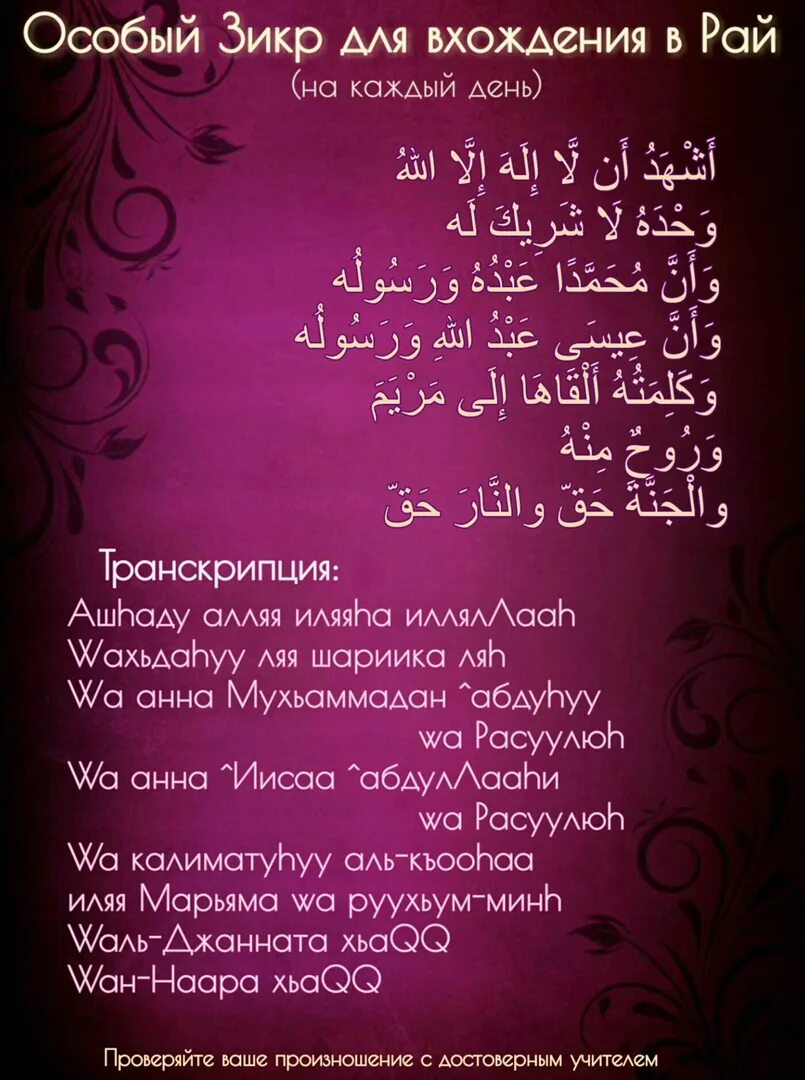 Особый Зикр для вхождения в Рай
(на каждый день)
أَشْهَدُ أَن لَّا إِلَهَ إِلَّا اللهُ
وَحْدَهُ لَا شَرِيكَ لَه
وَأَنَّ مُحَمَّدًا عَبْدُهُ وَرَسُولُه
وَأَنَّ عِيسَى عَبْدُ اللهِ وَرَسُولُه
وَكَلِمَتُهُ أَلْقَاهَا إِلَى مَرْيَمَ
وَرُوحٌ مِنْهُ
والْجَنَّةَ حَقّ والنَّارَ حَقّ
Транскрипция:
Ашhаду алляя иляяhа илляллЛааh
Wахьдаhуу ляя шариика ляh
Wа анна Мухьаммадан ^абдуhуу
wа Расуулюh
Wа анна ^Иисаа ^абдулЛааhи
wа Расуулюh
Wа калиматуhуу аль-къооhаа
иляя Марьяма wа руухьум-минh
Wаль-Джанната хьаQQ
Wан-Наара хьаQQ
Проверяйте ваше произношение с достоверным учителем